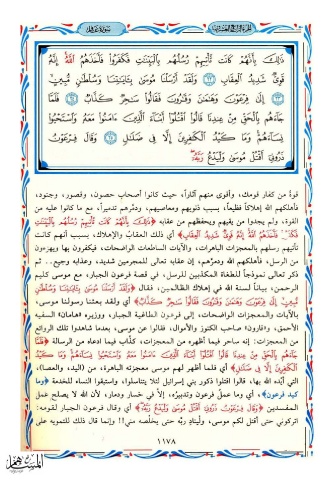 الجزء الرابع والعشرون
سورة غافر
ذَٰلِكَ بِأَنَّهُمْ كَانَت تَّأْتِيهِمْ رُسُلُهُم بِالْبَيِّنَٰتِ فَكَفَرُوا فَأَخَذَهُمُ اللَّهُ إِنَّهُ
قَوِيٌّ شَدِيدُ الْعِقَابِ ٢٢ وَلَقَدْ أَرْسَلْنَا مُوسَىٰ بِـَٔايَٰتِنَا وَسُلْطَٰنٍ مُّبِينٍ
٢٣ إِلَىٰ فِرْعَوْنَ وَهَٰمَٰنَ وَقَٰرُونَ فَقَالُوا سَٰحِرٌ كَذَّابٌ ٢٤ فَلَمَّا
جَاءَهُم بِالْحَقِّ مِنْ عِندِنَا قَالُوا اقْتُلُوا أَبْنَاءَ الَّذِينَ ءَامَنُوا مَعَهُ وَاسْتَحْيُوا
نِسَاءَهُمْ وَمَا كَيْدُ الْكَٰفِرِينَ إِلَّا فِي ضَلَٰلٍ ٢٥ وَقَالَ فِرْعَوْنُ
ذَرُونِي أَقْتُلْ مُوسَىٰ وَلْيَدْعُ رَبَّهُ
قوةً من كفار قومك، وأقوى منهم آثاراً، حيث كانوا أصحاب حصون، وقصور، وجنود،
فأهلكهم الله إهلاكاً فظيعاً، بسبب ذنوبهم ومعاصيهم، ودمَّرهم تدميراً، مع ما كانوا عليه من
القوة، ولم يجدوا من يقيهم ويحفظهم من عقابه ﴿ذَٰلِكَ بِأَنَّهُمْ كَانَت تَّأْتِيهِمْ رُسُلُهُم بِالْبَيِّنَٰتِ
فَكَفَرُوا فَأَخَذَهُمُ اللَّهُ إِنَّهُ قَوِيٌّ شَدِيدُ الْعِقَابِ﴾ أي ذلك العقابُ والإهلاك، بسبب أنهم كانت
تأتيهم رسلهم بالمعجزات الباهرات، والآيات الساطعات الواضحات، فيكفرون بها ويهزءون
من الرسل، فأهلكهم الله ودمرَّهم، إن عقابه تعالى للمجرمين شديد، وعذابه وجيع.. ثم
ذكر تعالى نموذجاً للطغاة المكذبين للرسل، في قصة فرعون الجبار، مع موسى كليم
الرحمن، بياناً لسنة الله في إهلاك الظالمين، فقال ﴿وَلَقَدْ أَرْسَلْنَا مُوسَىٰ بِـَٔايَٰتِنَا وَسُلْطَٰنٍ
مُّبِينٍ إِلَىٰ فِرْعَوْنَ وَهَٰمَٰنَ وَقَٰرُونَ فَقَالُوا سَٰحِرٌ كَذَّابٌ﴾ أي ولقد بعثنا رسولنا موسى،
بالآيات والمعجزات الواضحات، إلى فرعون الطاغية الجبار، ووزيره «هامان» السفيه
الأحمق، و«قارون» صاحب الكنوز والأموال، فقالوا عن موسى، بعدما شاهدوا تلك الروائع
من المعجزات: إنه ساحر فيما أظهره من المعجزات، كذَّاب فيما ادعاه من الرسالة ﴿فَلَمَّا
جَاءَهُم بِالْحَقِّ مِنْ عِندِنَا قَالُوا اقْتُلُوا أَبْنَاءَ الَّذِينَ ءَامَنُوا مَعَهُ وَاسْتَحْيُوا نِسَاءَهُمْ وَمَا كَيْدُ
الْكَٰفِرِينَ إِلَّا فِي ضَلَٰلٍ﴾ أي فلما أظهر لهم موسى معجزته الباهرة، من (اليد، والعصا)،
التي أيَّده الله بها، قالوا اقتلوا ذكور بني إسرائيل لئلا يتناسلوا، واستبقوا النساء للخدمة ﴿وما
كيد فرعون﴾، أي وما عمل فرعون وتدبيره، إلاَّ في خسار ودمار، لأن الله لا يصلح عمل
المفسدين ﴿وَقَالَ فِرْعَوْنُ ذَرُونِي أَقْتُلْ مُوسَىٰ وَلْيَدْعُ رَبَّهُ﴾ أي وقال فرعون الجبار لقومه:
اتركوني حتى أقتل لكم موسى، ولينادِ ربَّه حتى يخلّصه مني!! وإنما قال ذلك للتمويه على
١١٧٨